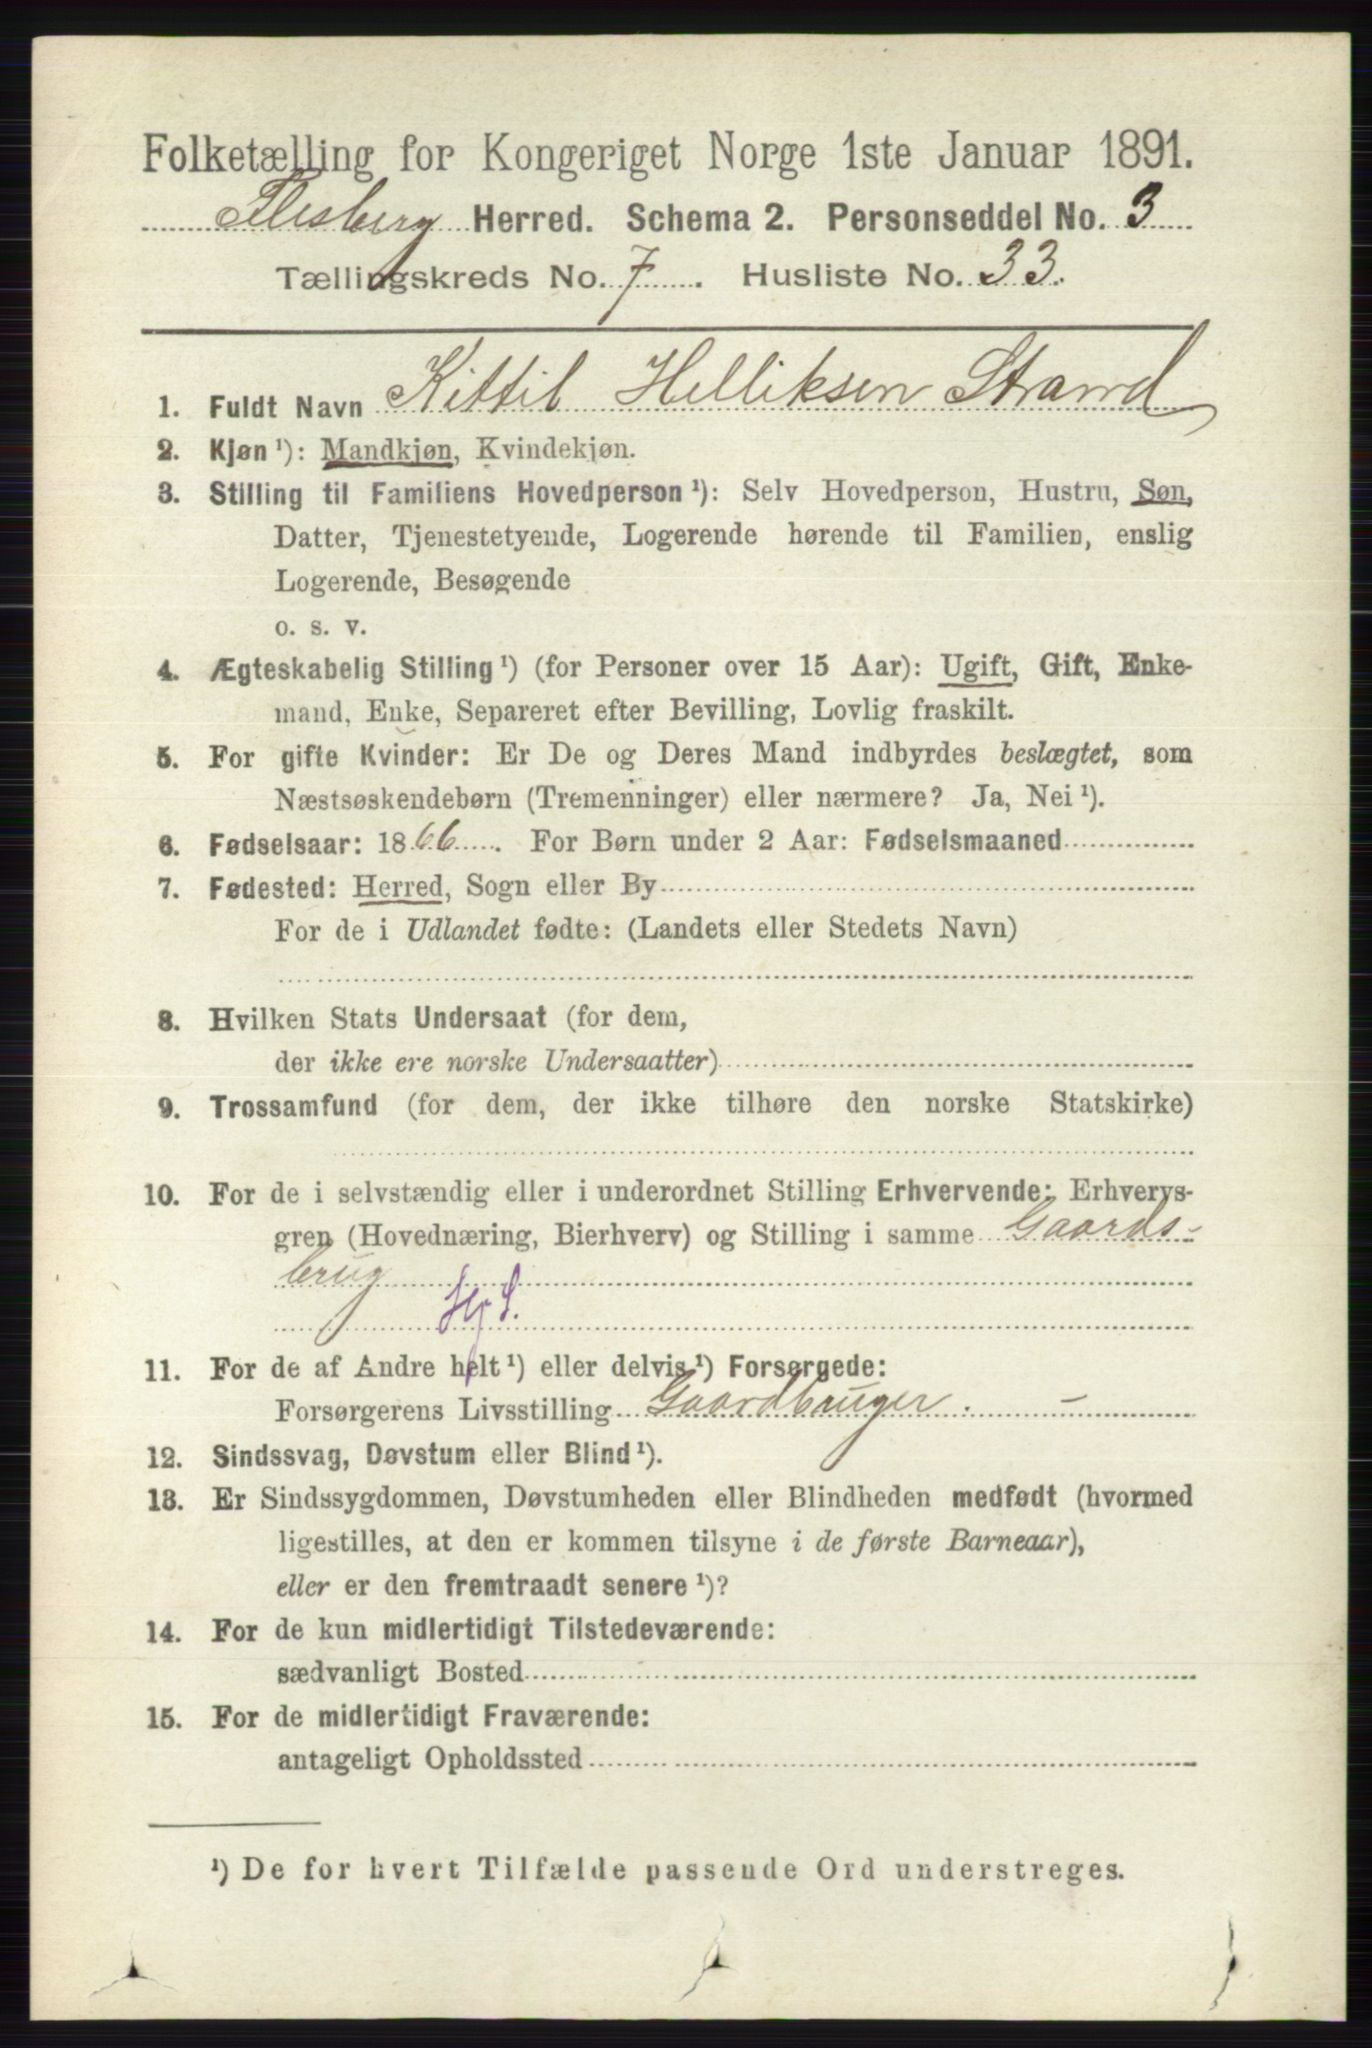 Folketælling for Kongeriget Norge 1ste Januar 1891.
Flesberg Herred. Schema 2. Personseddel No. 3
Tællingskreds No. 7. Husliste No. 33.
1. Fuldt Navn Kittil Helliksen Strand
2. Kjøn ¹): Mandkjøn, Kvindekjøn.
3. Stilling til Familiens Hovedperson ¹): Selv Hovedperson, Hustru, Søn,
Datter, Tjenestetyende, Logerende hørende til Familien, enslig
Logerende, Besøgende
o. s. v.
4. Ægteskabelig Stilling ¹) (for Personer over 15 Aar): Ugift, Gift, Enke-
mand, Enke, Separeret efter Bevilling, Lovlig fraskilt.
5. For gifte Kvinder: Er De og Deres Mand indbyrdes beslægtet, som
Næstsøskendebørn (Tremenninger) eller nærmere? Ja, Nei ¹).
6. Fødselsaar: 1866. For Børn under 2 Aar: Fødselsmaaned
7. Fødested: Herred, Sogn eller By
For de i Udlandet fødte: (Landets eller Stedets Navn)
8. Hvilken Stats Undersaat (for dem,
der ikke ere norske Undersaatter)
9. Trossamfund (for dem, der ikke tilhøre den norske Statskirke)
10. For de i selvstændig eller i underordnet Stilling Erhvervende: Erhvervs-
gren (Hovednæring, Bierhverv) og Stilling i samme Gaards-
brug
Hj S.
11. For de af Andre helt ¹) eller delvis ¹) Forsørgede:
Forsørgerens Livsstilling Gaardbruger. -
12. Sindssvag, Døvstum eller Blind ¹).
13. Er Sindssygdommen, Døvstumheden eller Blindheden medfødt (hvormed
ligestilles, at den er kommen tilsyne i de første Barneaar),
eller er den fremtraadt senere ¹)?
14. For de kun midlertidigt Tilstedeværende:
sædvanligt Bosted
15. For de midlertidigt Fraværende:
antageligt Opholdssted
¹) De for hvert Tilfælde passende Ord understreges.